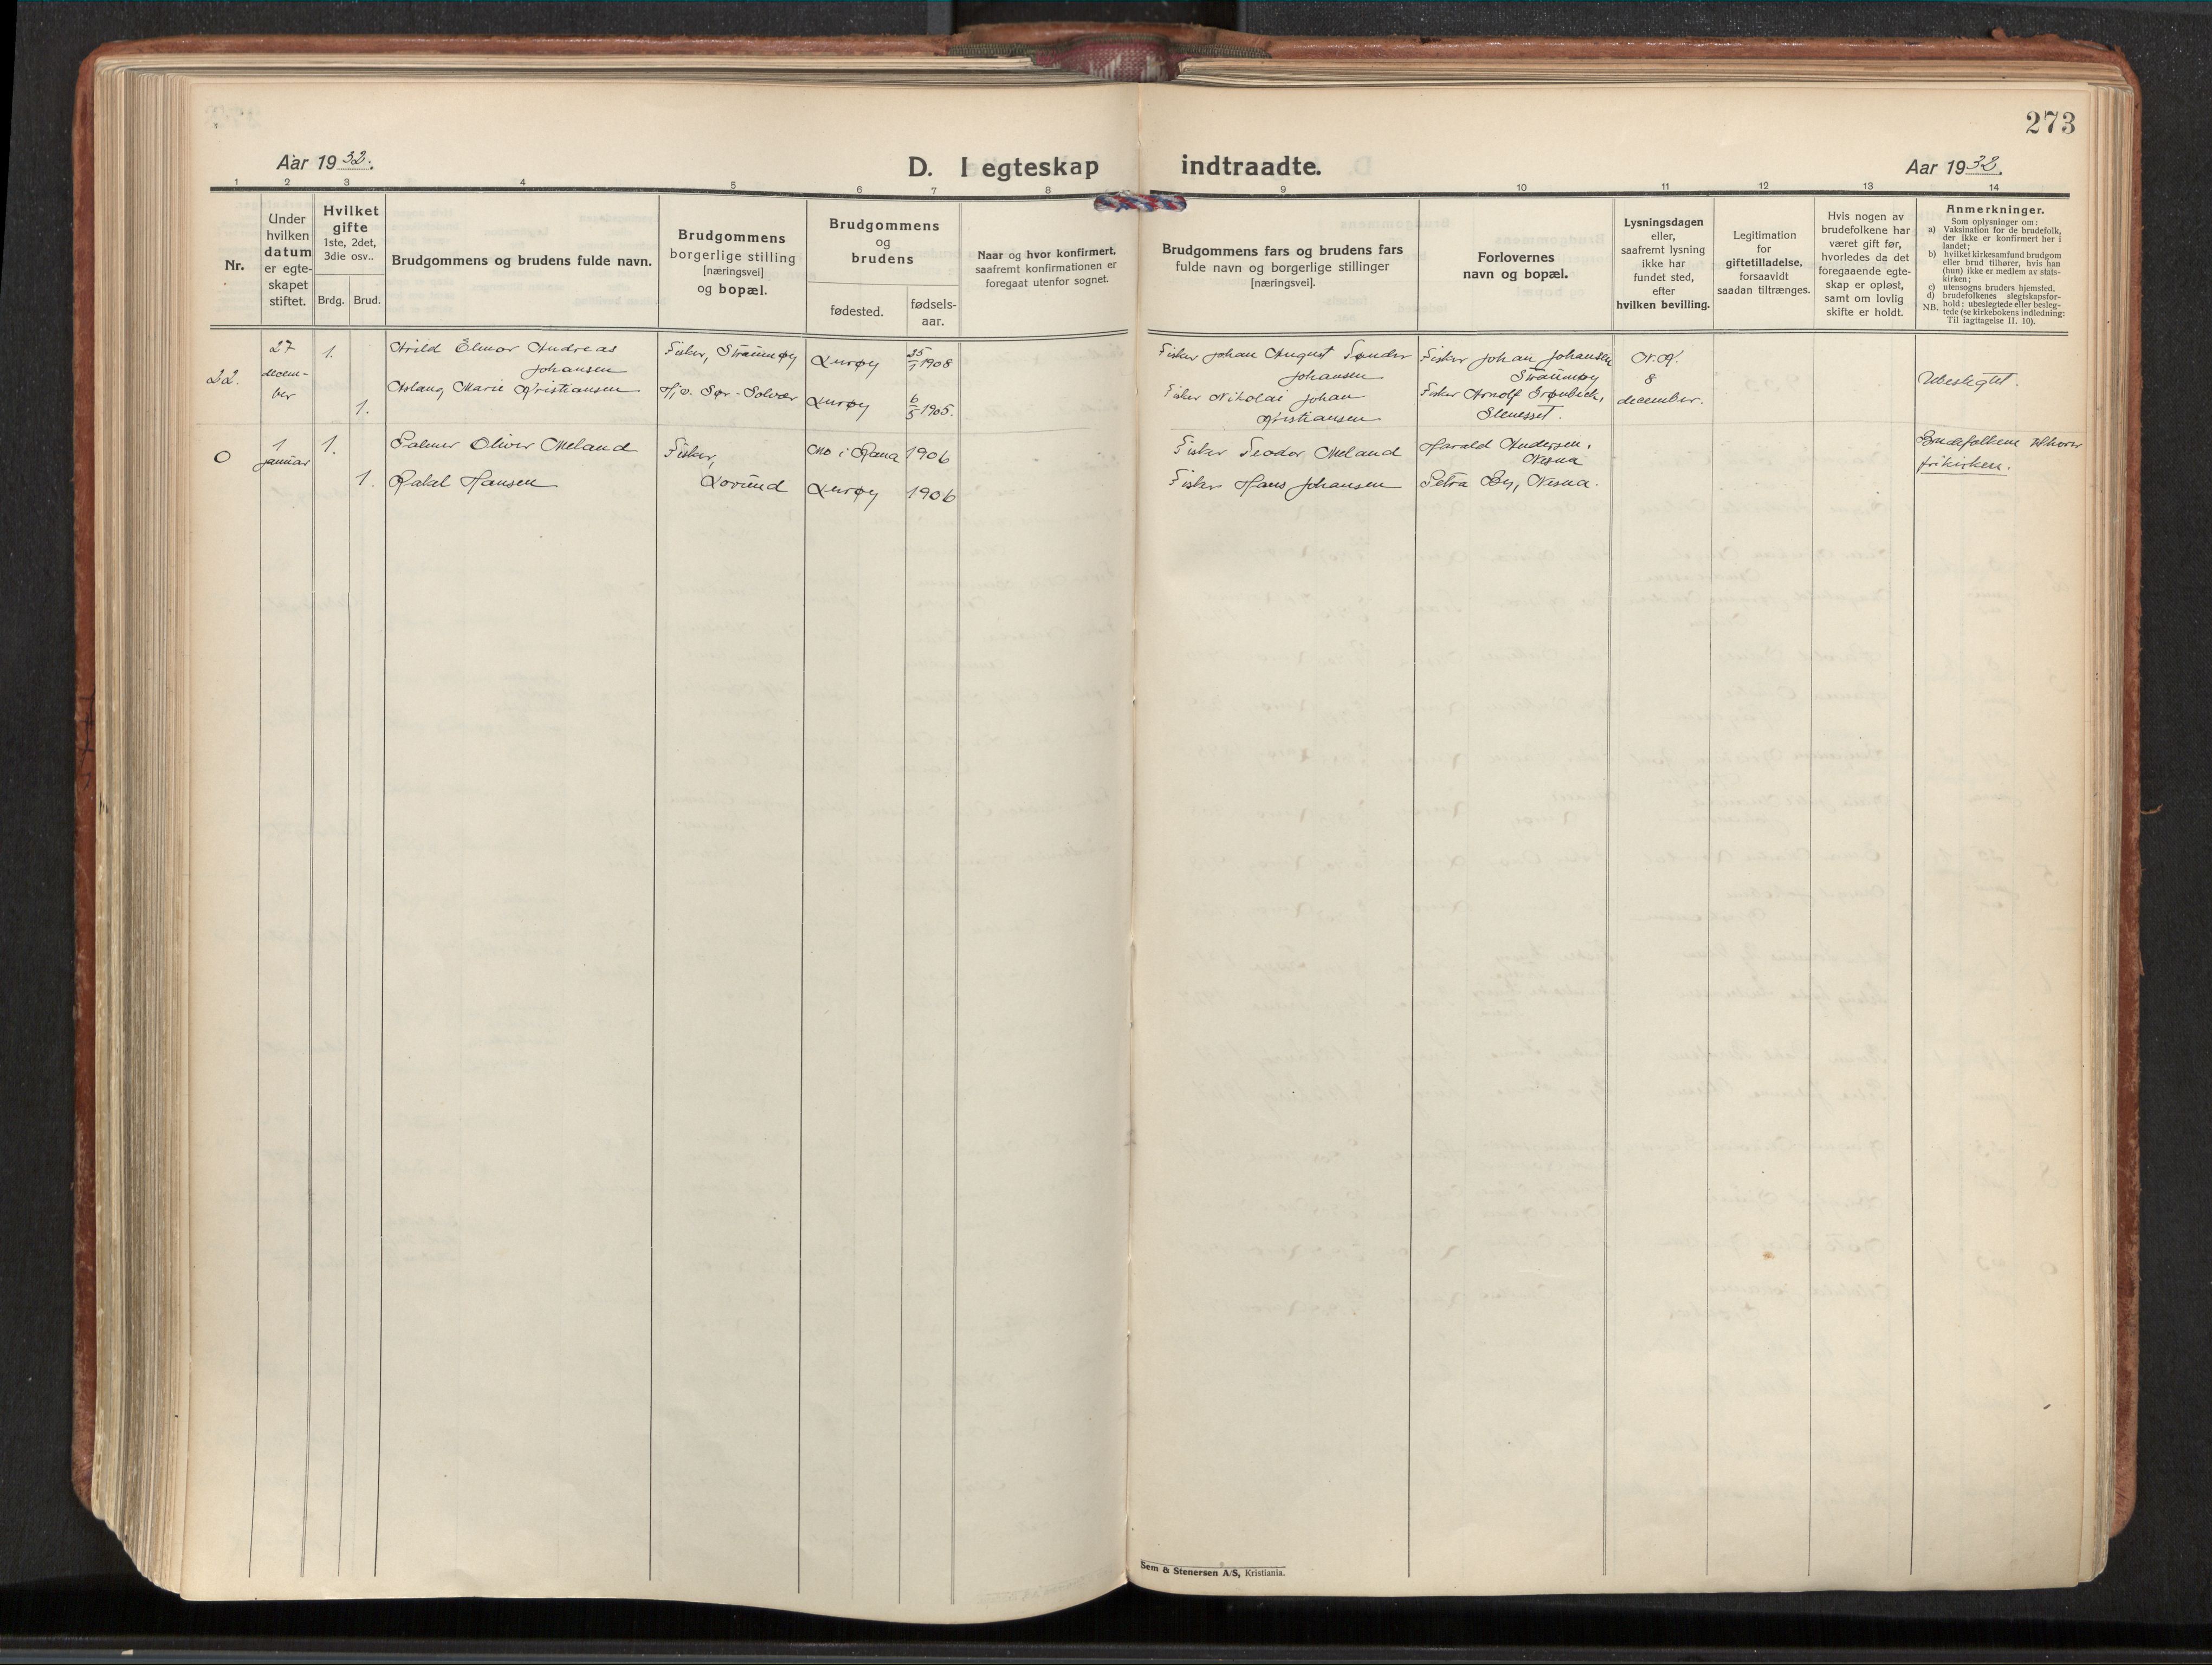 273
Aar 1932.
D. I egteskap indtraadte.
Aar 1932.
1 2 3 4 5 6 7 8 9 10 11 12 13 14
Nr.
Under
hvilken
datum
er egte-
skapet
stiftet.
Hvilket
gifte
1ste, 2det,
3die osv..
Brdg. Brud.
Brudgommens og brudens fulde navn.
Brudgommens
borgerlige stilling
[næringsvei]
og bopæl.
Brudgommens
og
brudens
fødested.
fødsels-
aar.
Naar og hvor konfirmert,
saafremt konfirmationen er
foregaat utenfor sognet.
Brudgommens fars og brudens fars
fulde navn og borgerlige stillinger
[næringsvei].
Forlovernes
navn og bopæl.
Lysningsdagen
eller,
saafremt lysning
ikke har
fundet sted,
efter
hvilken bevilling.
Legitimation
for
giftetilladelse,
forsaavidt
saadan tiltrænges.
Hvis nogen av
brudefolkene har
været gift før,
hvorledes da det
foregaaende egte-
skap er opløst,
samt om lovlig
skifte er holdt.
Anmerkninger.
Som oplysninger om:
a) Vaksination for de brudefolk,
der ikke er konfirmert her i
landet;
b) hvilket kirkesamfund brudgom
eller brud tilhører, hvis han
(hun) ikke er medlem av stats-
kirken;
c) utensogns bruders hjemsted.
d) brudefolkenes slegtskapsfor-
NB. hold: ubeslegtede eller besleg-
tede (se kirkebokens indledning:
Til iagttagelse II. 10).
22.
27
decem-
ber
1.
Arild Elmar Andreas
Johansen
Fisker, Straumøy
Lurøy
25/1 1908
Fisker Johan August Sønder
Johansen
Fisker Johan Johansen
Straumøy
N.K.
8
december.
Ubeslegtet.
1.
Aslaug Marie Kristiansen
Hjv. Sør-Solvær
Lurøy
6/5 1905.
Fisker Nikolai Johan
Kristiansen
Fisker Arnolf Grønbech,
0
1
januar
1.
Palmer Oliver Meland
Fisker,
Mo i Rana
1906
Fisker Teodor Meland
Harald Andersen,
Nesna
Brudefolkene tilhører
frikirken.
1.
Rakel Hansen
Lovund
Lurøy
1906
Fisker Hans Johansen
Petra By, Nesna.
Sem & Stenersen A/S, Kristiania.